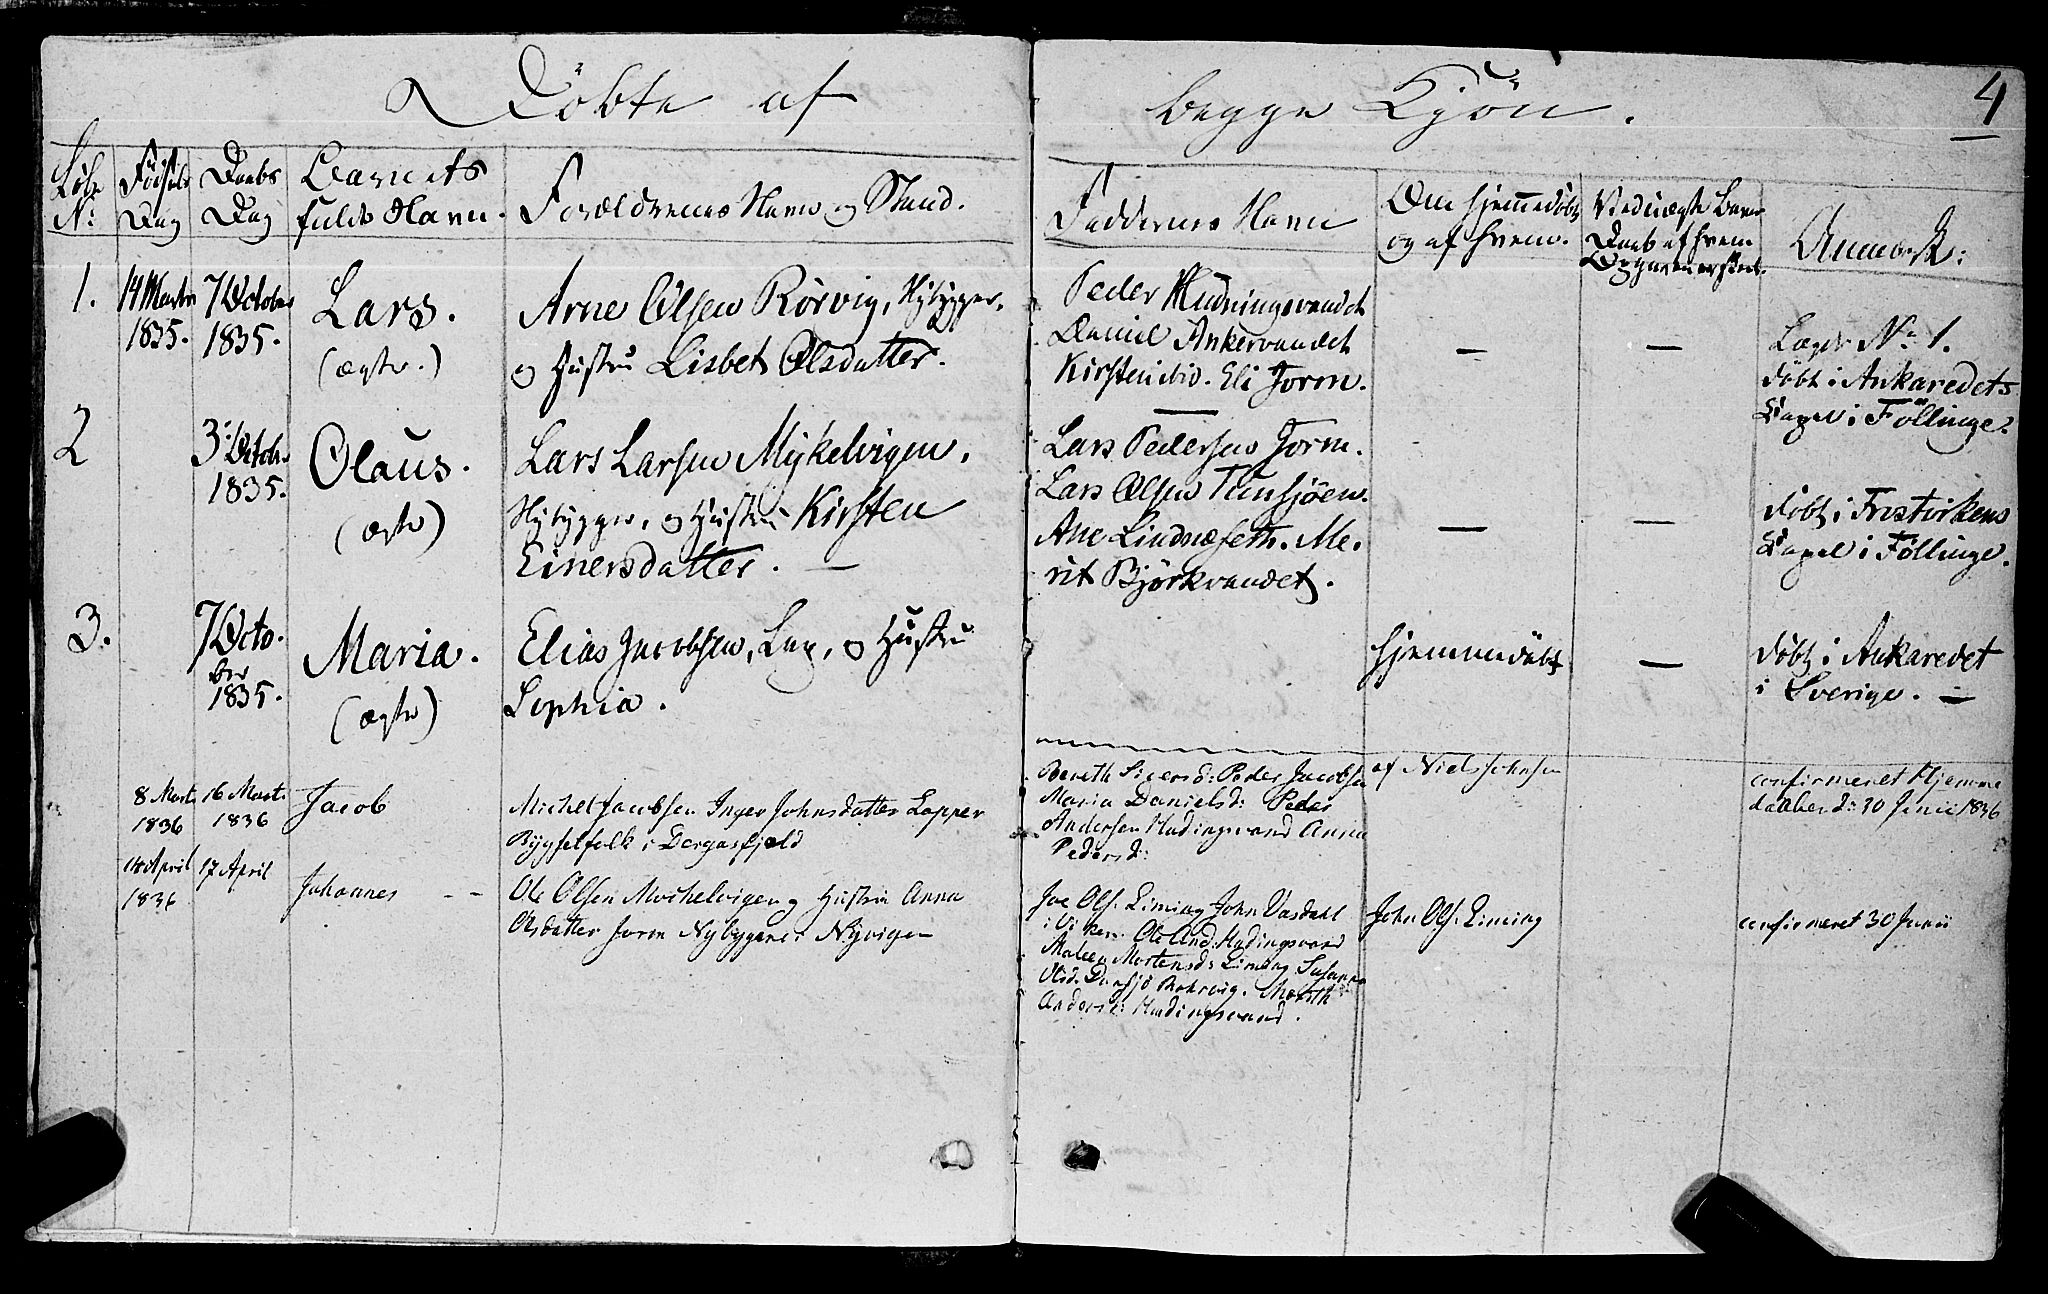 Döbte af begge Kjön.
4
Löbe No:
Födsels Dag
Daabs Dag
Barnets fulde Navn.
Forældrenes Navn og Stand.
Faddernes Navn
Om hjemmedöbt og af hvem.
Ved uægte Børns Daab af hvem
Anmærk:
1.
14 Marts 1835.
7 October 1835.
Lars.
(ægte.)
Arne Olsen Rörvig, Nybygger,
og Hustru Lisbet Olsdatter.
Peder Hudningsvandet
Daniel Ankervandet
Kirsten ibid. Eli Jorm.
—
—
Lægd No 1.
döbt i Ankaredets
Capel i Föllinge.
2
3: October 1835.
Olaus.
(ægte)
Lars Larsen Mykelvigen,
Nybygger, og Hustru Kirsten
Einersdatter. —
Lars Pedersen Jorm.
Lars Olsen Tunsjöen.
Ane Lindnæseth. Me-
rit Björkvandet.
—
—
döbt i Frostvikens
Capel i Föllinge.
3.
7 Octo-
ber
1835.
Maria.
(ægte)
Elias Jacobsen, Lap, og Hustru
Sophia.
hjemmedöbt
—
döbt i Ankaredet
i Sverige. —
8 Marts 1836
16 Marts 1836
Jacob
Michel Jacobsen Inger Johnsdatter Lapper
Bygselfolk i Dergasfjeld
Bereth Siversd: Peder Jacobsen
Maria Danielsd: Peder
Andersen Hudingsvand Anna
Pedersd:
af Niels Johnsen
confirmeret Hjemme
daaben d: 30 Junii 1836
14 April 1836
17 April
Johannes - -
Ole Olsen Mochelvigen og Hustru Anna
Olsdatter Jorm Nybyggere i Nyvigen
Joe Ols: Liming John Vasdahl
i Viken Ole And: Hudingsvand
Maleen Mortensd: Liming Susanna
Olsd. Tunsjö Rohrvig. Mereth
Andersd: Hudingsvand.
John Ols: Liming
confirmeret 30 Junii